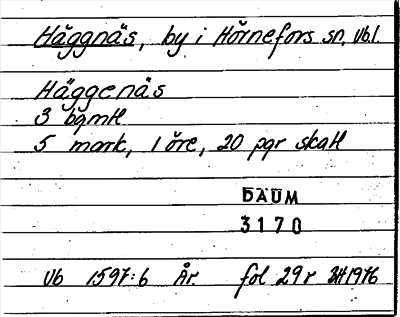 Häggnäs, by i Hörnefors sn, Vb.l.
Häggenäs
3 bgmtl
5 mark, 1 öre, 20 pgr skatt
DAUM
3170
Vb 1597:6 År. fol 29r